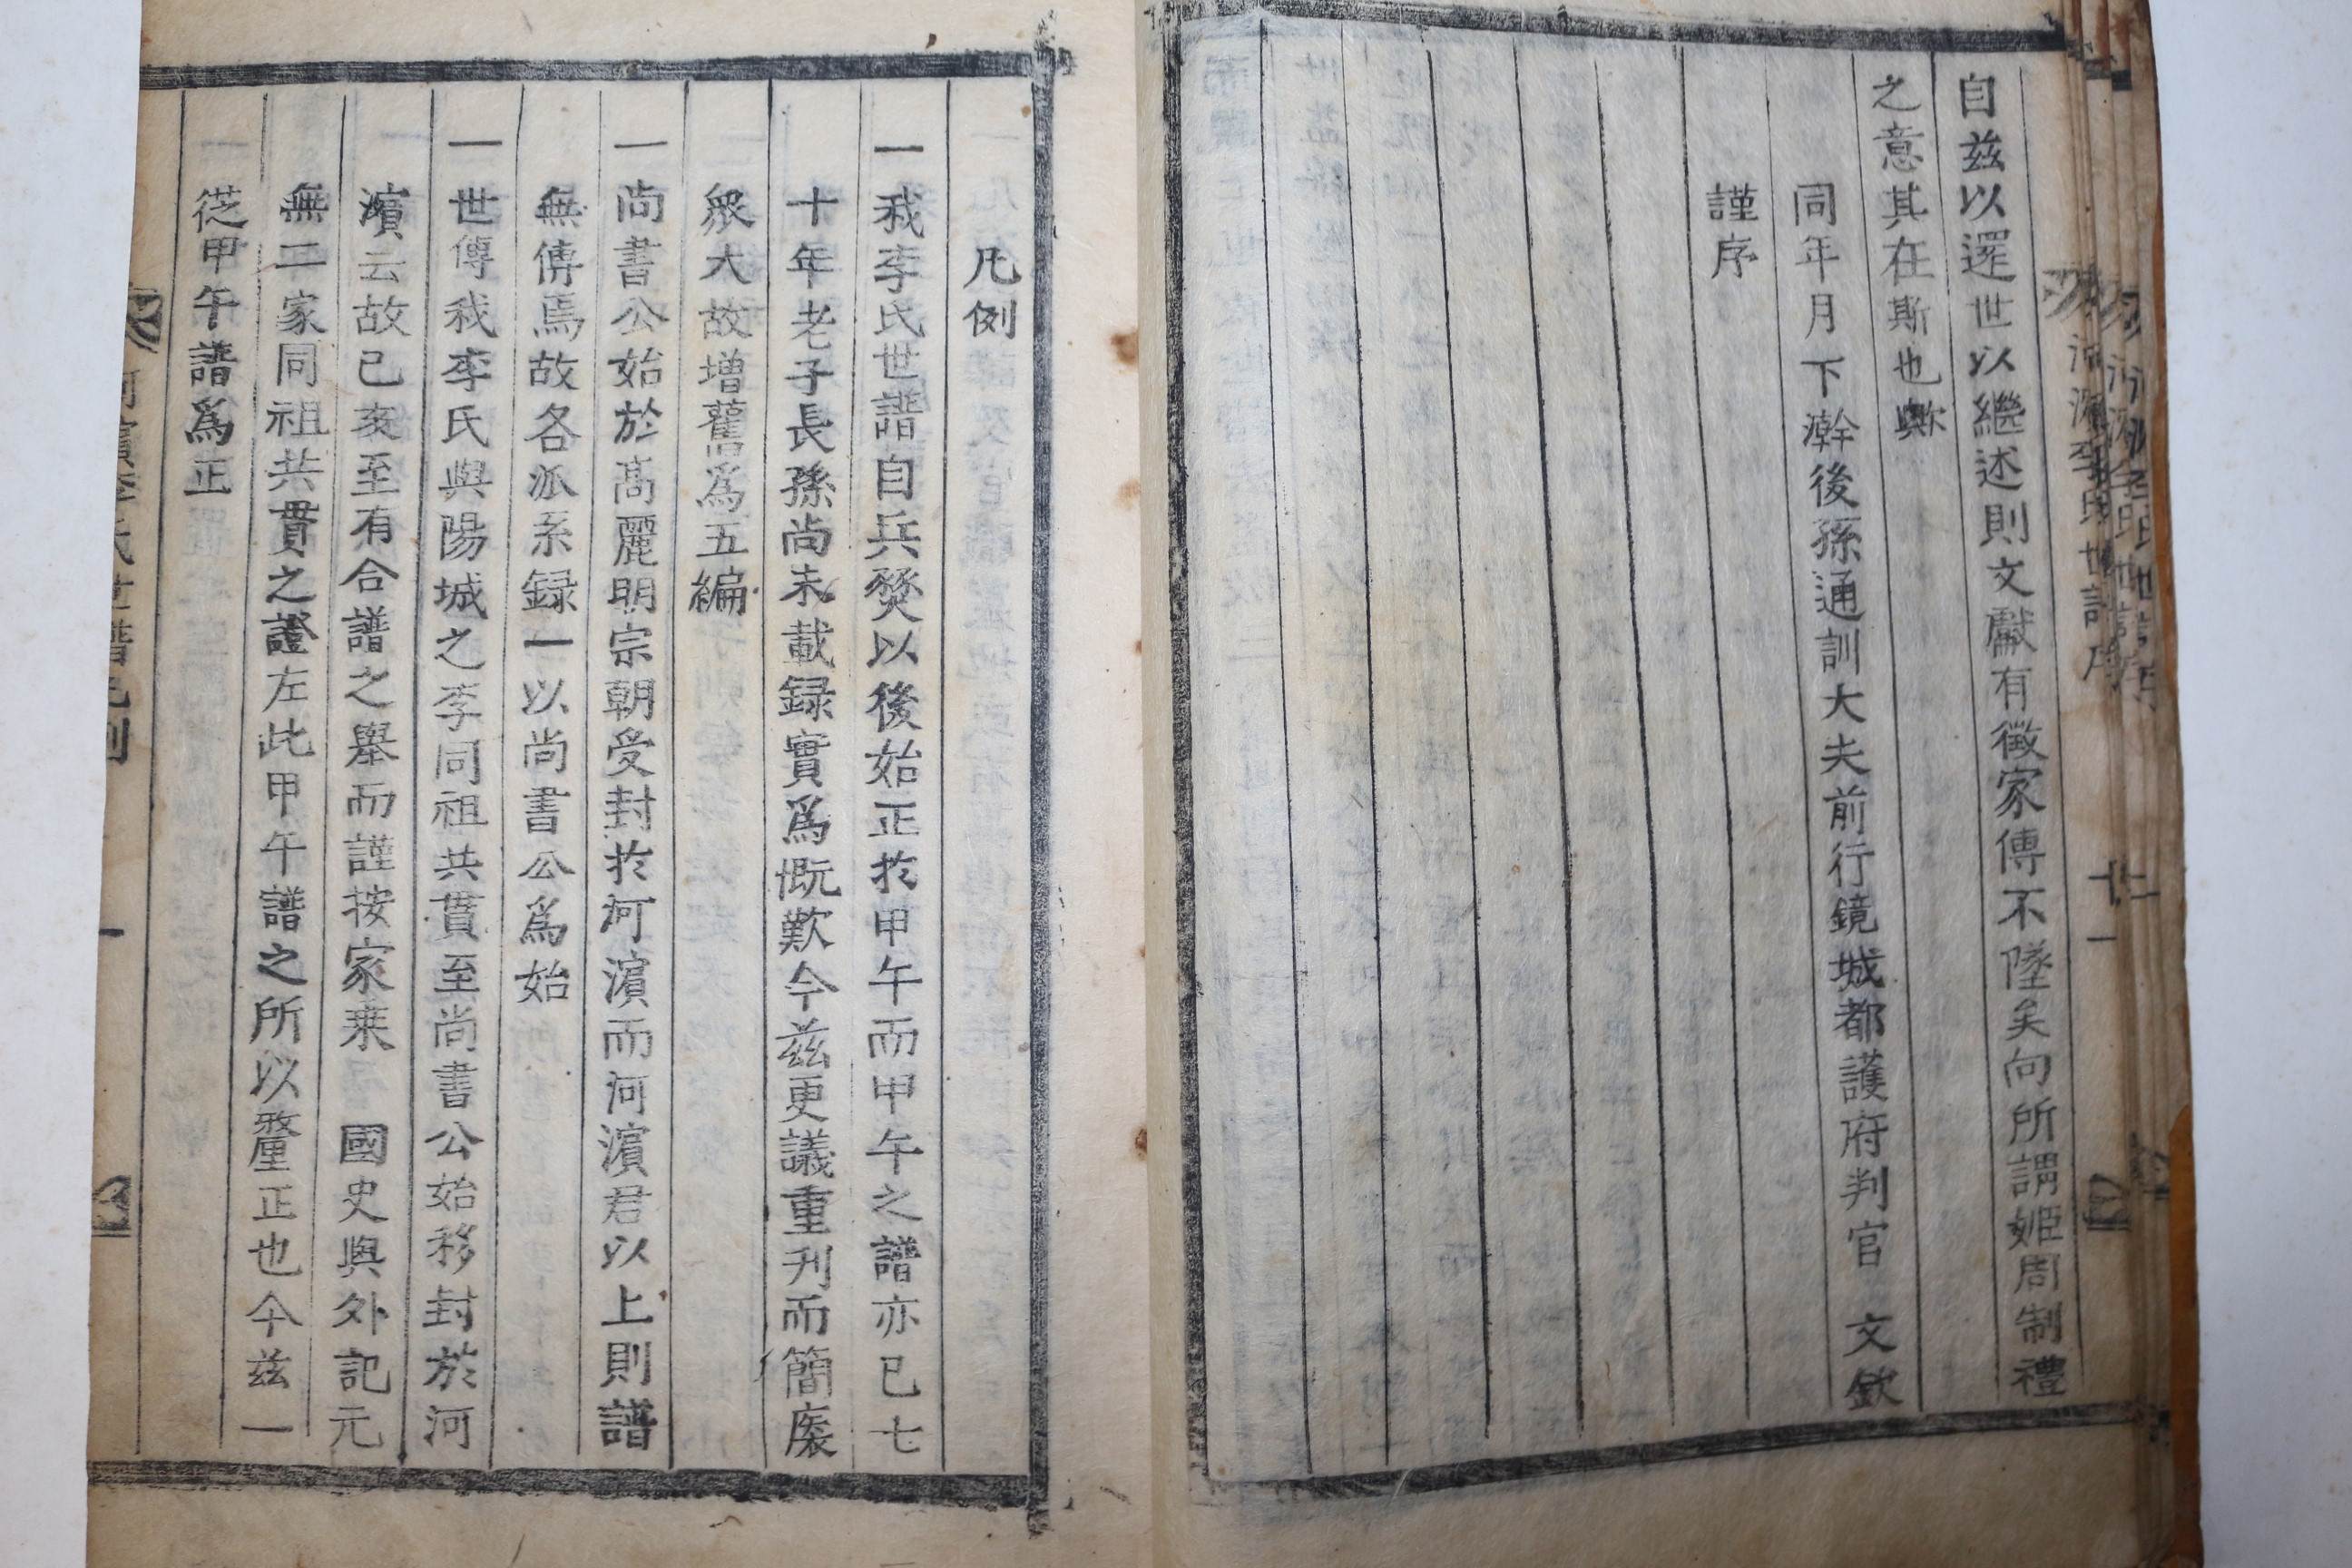 自兹以還世以繼述則文獻有徵家傳不墜矣向所謂姬周制禮
之意其在斯也歟
同年月下澣後孫通訓大夫前行鏡城都護府判官 文欽
謹序
凡例
一我李氏世譜自兵燹以後始正扵甲午而甲午之譜亦已七
十年老子長孫尚未載録實爲慨歎今兹更議重刋而簡
衆大故増舊爲五編
一尚書公始於髙麗明宗朝受封扵河濵而河濵君以上則譜
無傳焉故各派系録一以尚書公爲始
一世傳我李氏與陽城之李同祖共貫至尚書公始移封於河
濵云故已亥至有合譜之舉而謹按家乗 國史與外記元
無二家同祖共貫之證左此甲午譜之所以釐正也今兹一
從甲午譜爲正
河濵李氏世譜凡例 一
河濵李氏世譜序